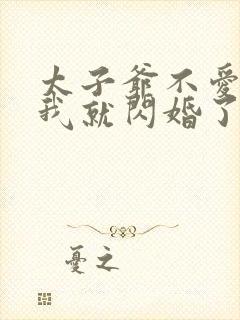 太子爺不愛
我就閃婚了
憂之